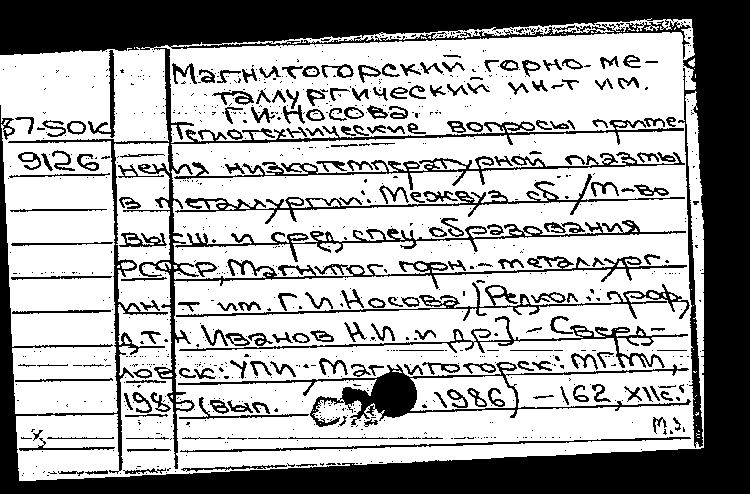 Магнитогорский горно-ме-
таллургический ин-т им.
Г.И.Носова.
87-50К Теплотехнические вопросы приме-
9126 нения низкотемпературной плазмы
в металлургии: Межвуз. сб. / М-во
высш. и сред. спец. образования
РСФСР, Магнитог. горн.-металлург.
ин-т им. Г.И.Носова; [Редкол.: проф.,
д.т.н. Иванов Н.И. и др.] - Сверд-
ловск: УПИ; Магнитогорск: МГМИ,
1985 (вып. . 1986) - 162, XIIс.: